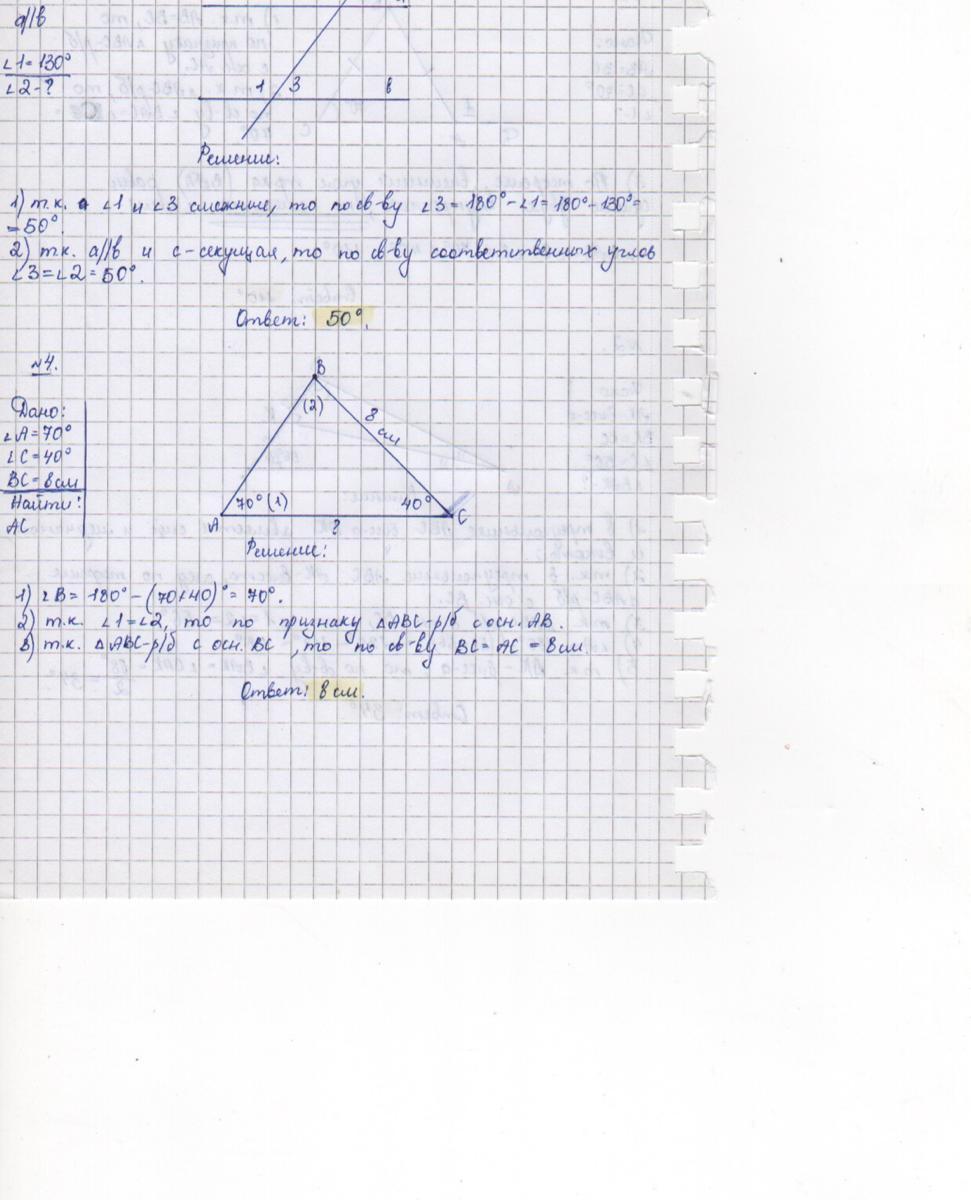 a//b
∠1=130°
∠2-?
1 3 b
Решение:
1) т.к. ∠1 и ∠3 смежные, то по св-ву ∠3=180°-∠1=180°-130°=
=50°.
2) т.к. a//b и c-секущая, то по св-ву соответственных углов
∠3=∠2=50°.
Ответ: 50°.
№4.
Дано:
∠A=70°
∠C=40°
BC=8см
Найти:
AC
B
(2)
8 см
70° (1)
40°
A
?
C
Решение:
1) ∠B=180°-(70+40)°=70°.
2) т.к. ∠1=∠2, то по признаку △ABC-р/б с осн. AB.
3) т.к. △ABC-р/б с осн. BC, то по св-ву BC=AC=8см.
Ответ: 8см.